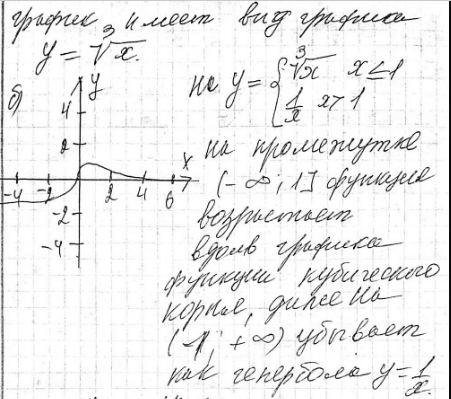 график имеет вид графика
y = ∛x.
б)
y
4
2
x
-4 -2 2 4 6
-2
-4
но y = { ∛x x ≤ 1
1/x x > 1
на промежутке
(-∞; 1] функция
возрастает
вдоль графика
функции кубического
корня, далее на
(1; +∞) убывает
как гипербола y = 1/x.